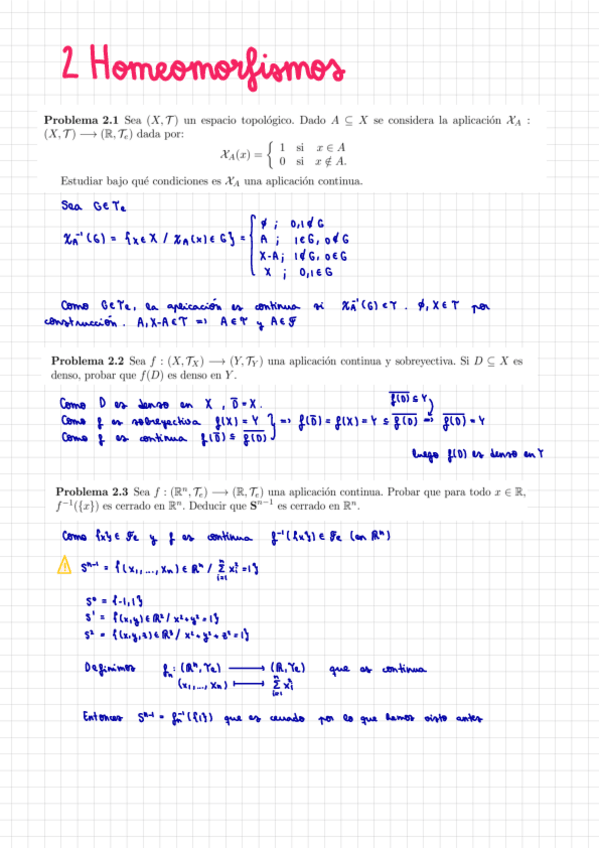 2 Homeomorfismos
Problema 2.1 Sea (X, T) un espacio topológico. Dado A ⊆ X se considera la aplicación 𝒳_A :
(X, T) ⟶ (ℝ, T_e) dada por:
𝒳_A(x) = { 1 si x ∈ A
0 si x ∉ A.
Estudiar bajo qué condiciones es 𝒳_A una aplicación continua.
Sea G∈T_e
χ_A⁻¹(G) = {x∈X / χ_A(x)∈G} = { ∅ ; 0,1∉G
A ; 1∈G, 0∉G
X-A ; 1∉G, 0∈G
X ; 0,1∈G
Como G∈T_e, la aplicación es continua si χ_A⁻¹(G)∈T. ∅,X∈T por
construcción. A,X-A∈T => A∈T y A∈F
Problema 2.2 Sea f : (X, T_X) ⟶ (Y, T_Y) una aplicación continua y sobreyectiva. Si D ⊆ X es
denso, probar que f(D) es denso en Y.
Como D es denso en X, D̅ = X.
Como f es sobreyectiva f(X) = Y
Como f es continua f(D̅) ⊆ \overline{f(D)} } => f(D̅) = f(X) = Y ⊆ \overline{f(D)} \overline{f(D)} ⊆ Y } => \overline{f(D)} = Y
luego f(D) es denso en Y
Problema 2.3 Sea f : (ℝⁿ, T_e) ⟶ (ℝ, T_e) una aplicación continua. Probar que para todo x ∈ ℝ,
f⁻¹({x}) es cerrado en ℝⁿ. Deducir que Sⁿ⁻¹ es cerrado en ℝⁿ.
Como {x}∈F_e y f es continua f⁻¹({x})∈F_e (en ℝⁿ)
Sⁿ⁻¹ = {(x₁,...,xₙ)∈ℝⁿ / Σ_{i=1}^{n} x_i² = 1}
S⁰ = {-1,1}
S¹ = {(x,y)∈ℝ² / x²+y²=1}
S² = {(x,y,z)∈ℝ³ / x²+y²+z²=1}
Definimos fₙ : (ℝⁿ,T_e) ⟶ (ℝ,T_e) que es continua
(x₁,...,xₙ) ⟼ Σ_{i=1}^{n} x_i²
Entonces Sⁿ⁻¹ = fₙ⁻¹({1}) que es cerrado por lo que hemos visto antes